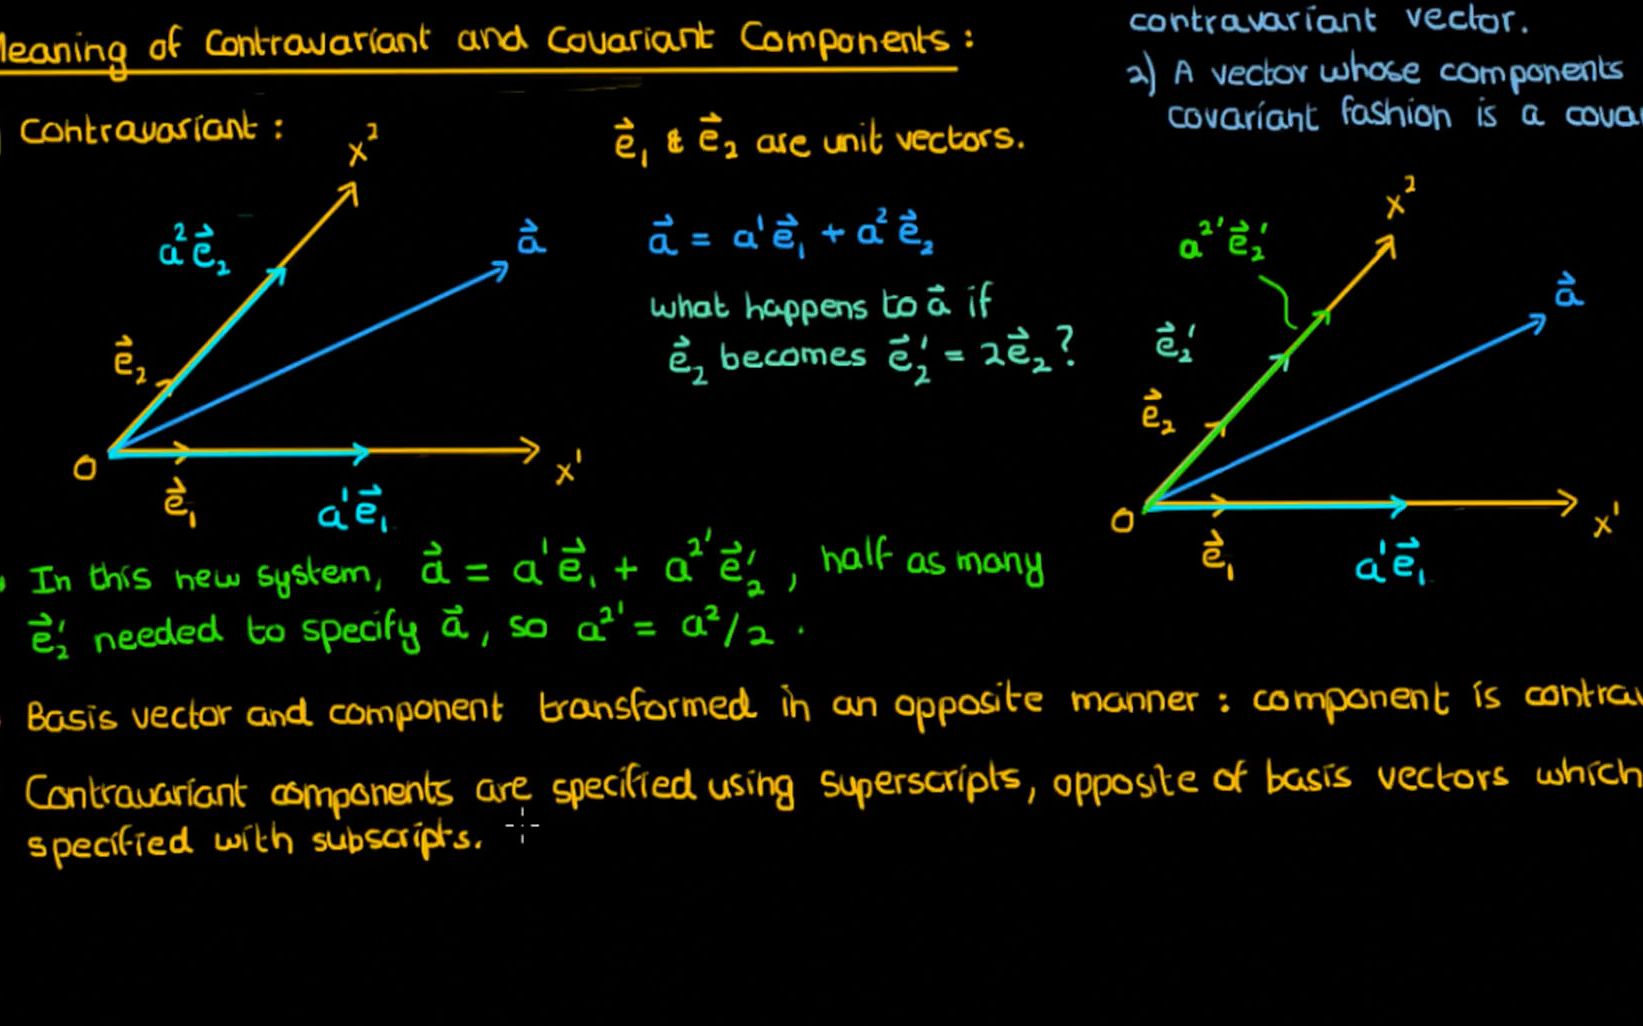 Meaning of Contravariant and Covariant Components:
contravariant vector.
2) A vector whose components
covariant fashion is a
Contravariant:
e⃗₁ & e⃗₂ are unit vectors.
x²
a²e⃗₂
a⃗
e⃗₂
O
e⃗₁
a¹e⃗₁
x¹
a⃗ = a¹e⃗₁ + a²e⃗₂
what happens to a⃗ if
e⃗₂ becomes e⃗₂' = 2e⃗₂?
x²
a²'e⃗₂'
a⃗
e⃗₂'
e⃗₂
O
e⃗₁
a¹e⃗₁
x¹
In this new system, a⃗ = a¹e⃗₁ + a²'e⃗₂', half as many
e⃗₂' needed to specify a⃗, so a²' = a²/2.
Basis vector and component transformed in an opposite manner: component is
Contravariant components are specified using superscripts, opposite of basis vectors which
specified with subscripts.